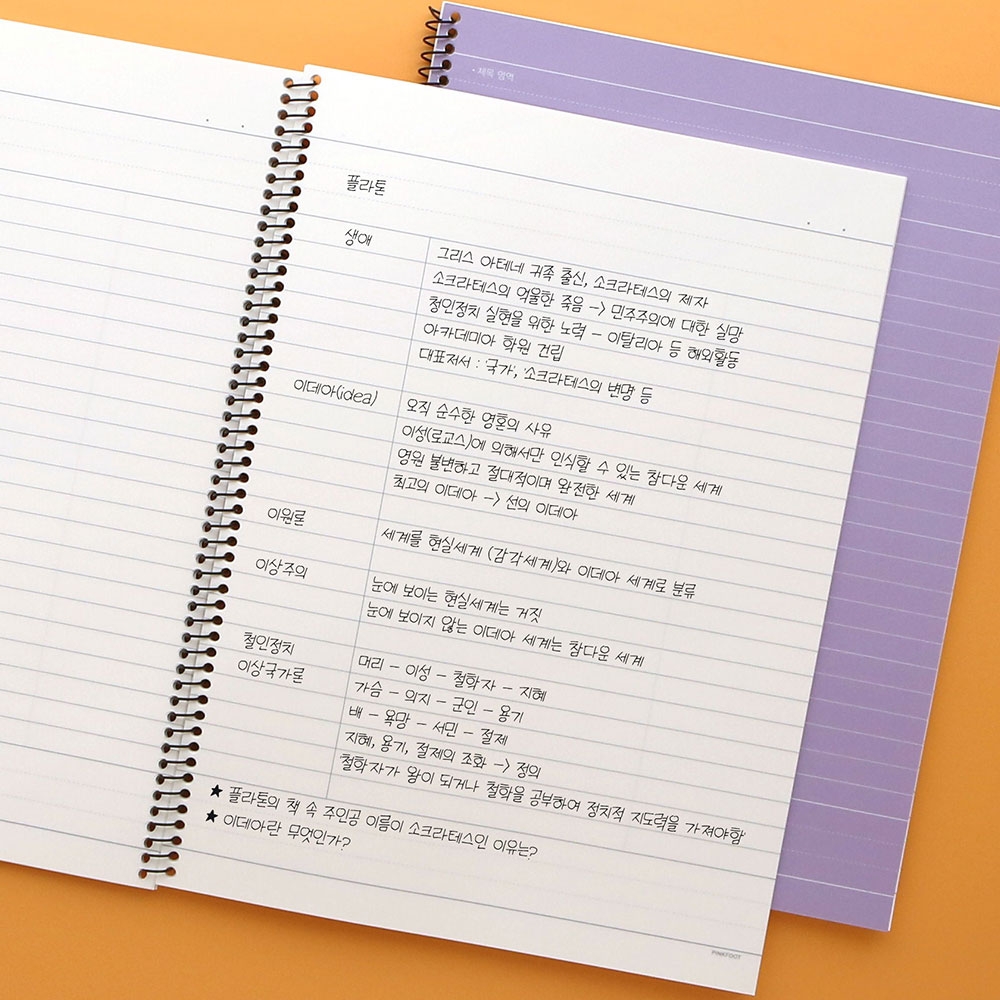 • 제목 영역
플라톤
생애
그리스 아테네 귀족 출신, 소크라테스의 제자
소크라테스의 억울한 죽음 -> 민주주의에 대한 실망
철인정치 실현을 위한 노력 - 이탈리아 등 해외활동
아카데미아 학원 건립
대표저서 : '국가', '소크라테스의 변명' 등
이데아(idea)
오직 순수한 영혼의 사유
이성(로고스)에 의해서만 인식할 수 있는 참다운 세계
영원 불변하고 절대적이며 완전한 세계
최고의 이데아 -> 선의 이데아
이원론
세계를 현실세계 (감각세계)와 이데아 세계로 분류
이상주의
눈에 보이는 현실세계는 거짓
눈에 보이지 않는 이데아 세계는 참다운 세계
철인정치
이상국가론
머리 - 이성 - 철학자 - 지혜
가슴 - 의지 - 군인 - 용기
배 - 욕망 - 서민 - 절제
지혜, 용기, 절제의 조화 -> 정의
철학자가 왕이 되거나 철학을 공부하여 정치적 지도력을 가져야함
★ 플라톤의 책 속 주인공 이름이 소크라테스인 이유는?
★ 이데아란 무엇인가?
PINKFOOT